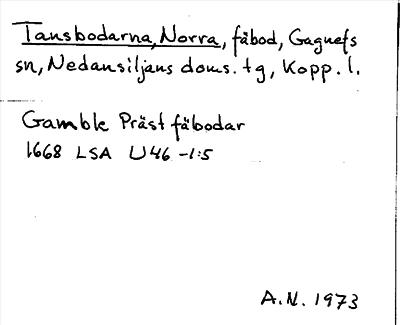 Tansbodarna, Norra, fäbod, Gagnefs
sn, Nedansiljans doms. tg, Kopp. l.
Gamble Präst fäbodar
1668 LSA U46 -1:5
A.N. 1973